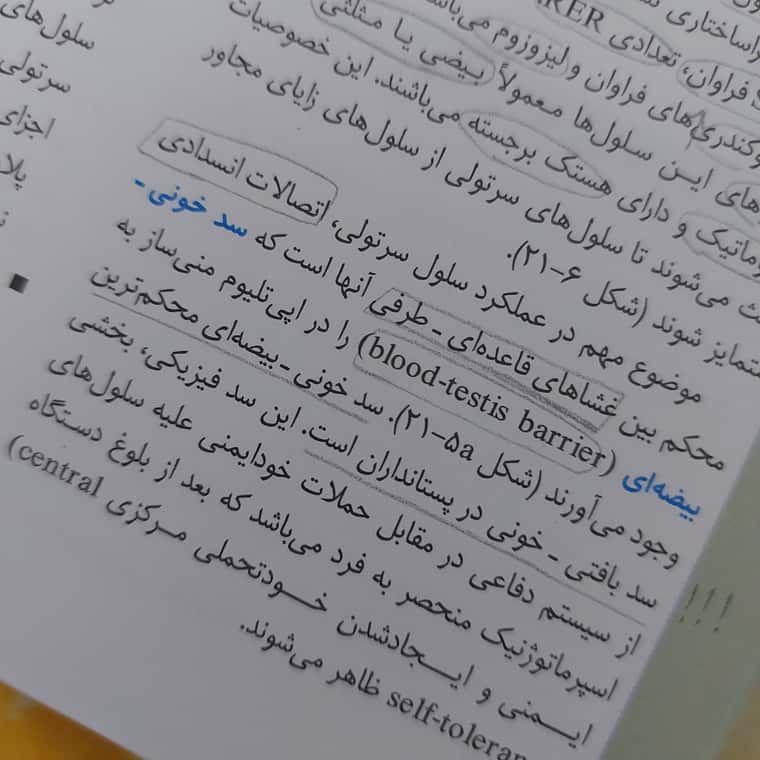 راساختاری
فراوان، تعدادی RER،
وکندری‌های فراوان و لیزوزوم می‌باشند
های ایـن سـلول‌ها معمولاً بـیضی یـا مـثلثی
وماتیک و دارای هستک برجسته می‌باشند. این خصوصیات
ث می‌شوند تا سلول‌های سرتولی از سلول‌های زایای مجاور
متمایز شوند (شکل ۶-۲۱).
موضوع مهم در عملکرد سلول سرتولی، اتصالات انسدادی
محکم بین غشاهای قاعده‌ای ـ طرفی آنها است که سد خونی ـ
بیضه‌ای (blood-testis barrier) را در اپی‌تلیوم منی‌ساز به
وجود می‌آورند (شکل ۲۱-۵a). سد خونی ـ بیضه‌ای محکم‌ترین
سد بافتی ـ خونی در پستانداران است. این سد فیزیکی، بخشی
از سیستم دفاعی در مقابل حملات خودایمنی علیه سلول‌های
اسپرماتوژنیک منحصر به فرد می‌باشد که بعد از بلوغ دستگاه
ایـمنی و ایـجادشدن خـودتحملی مـرکزی (central
self-toleran ظاهر می‌شوند.
سلول‌های
سرتولی
اجزای
پلا
!!!